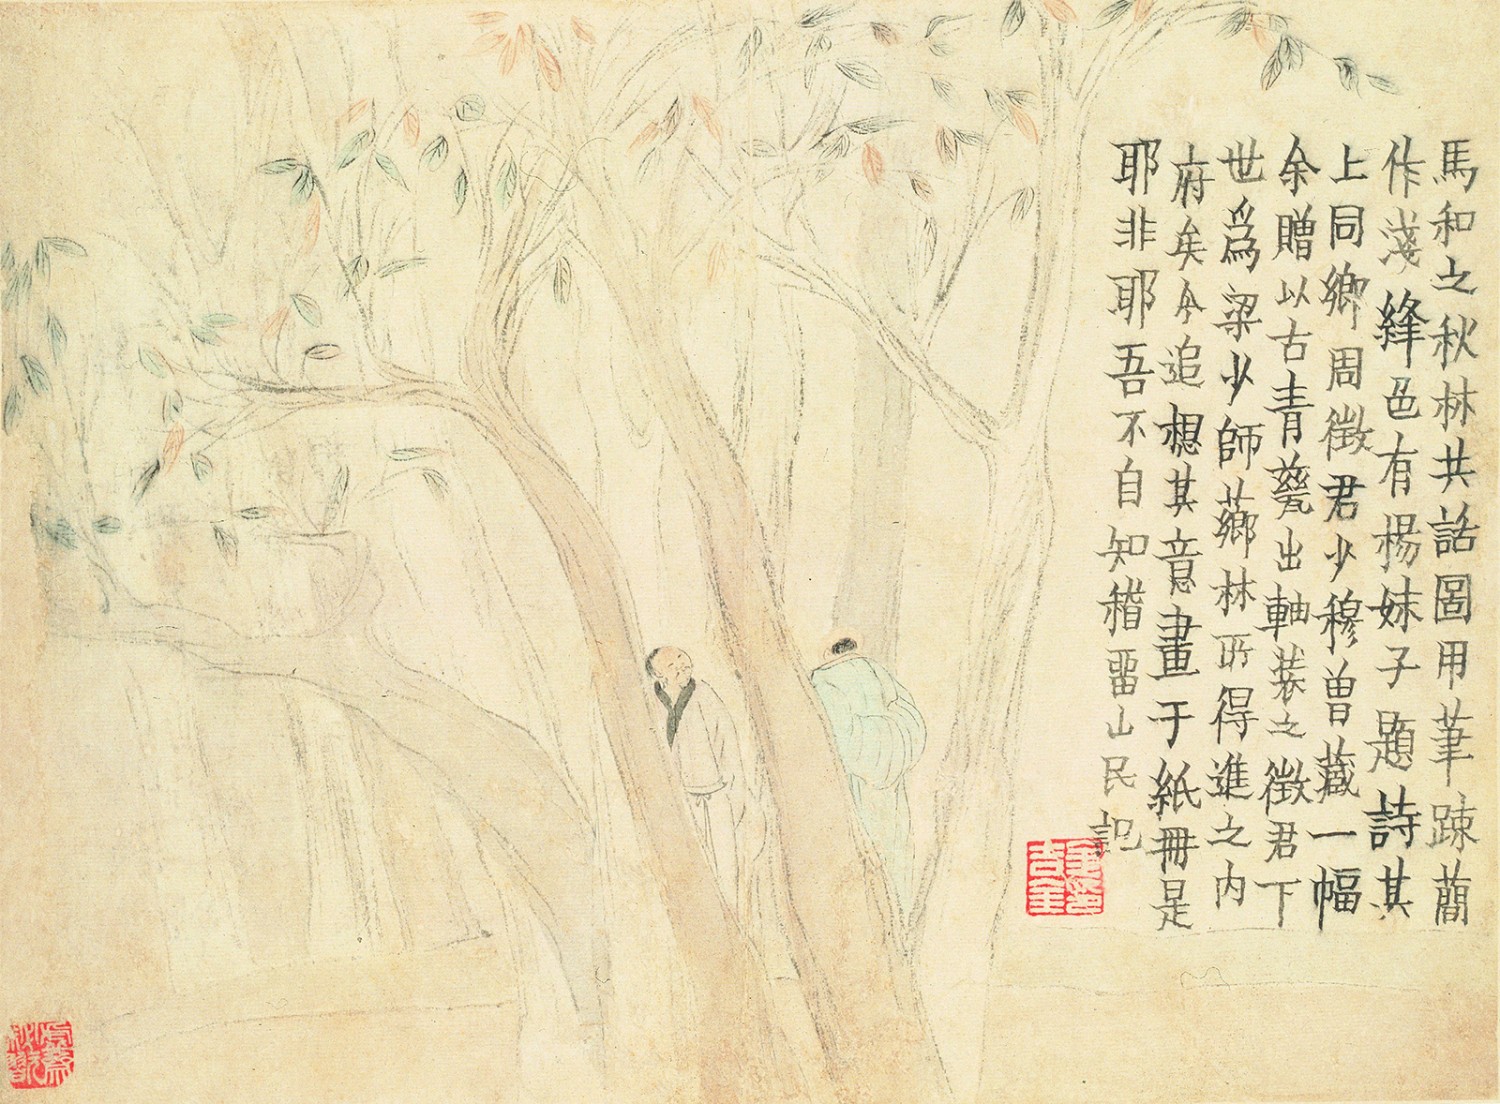 馬和之秋林共話圖用筆踈蕳
作淺絳色有楊妹子題詩其
上同鄉周徵君少穆曾藏一幅
余贈以古青甆出軸裝之徵君下
世爲梁少師薌林所得進之内
府矣今追想其意畫于紙冊是
耶非耶吾不自知稽畱山民記